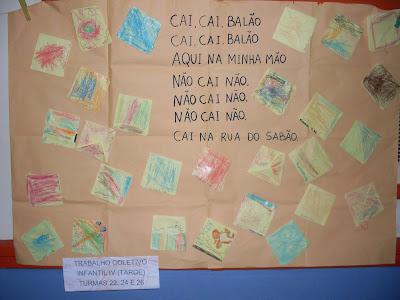 CAI, CAI, BALÃO
CAI, CAI, BALÃO
AQUI NA MINHA MÃO
NÃO CAI NÃO,
NÃO CAI NÃO,
NÃO CAI NÃO,
CAI NA RUA DO SABÃO.
TRABALHO COLETIVO
INFANTIL IV (TARDE)
TURMAS 22, 24 E 26